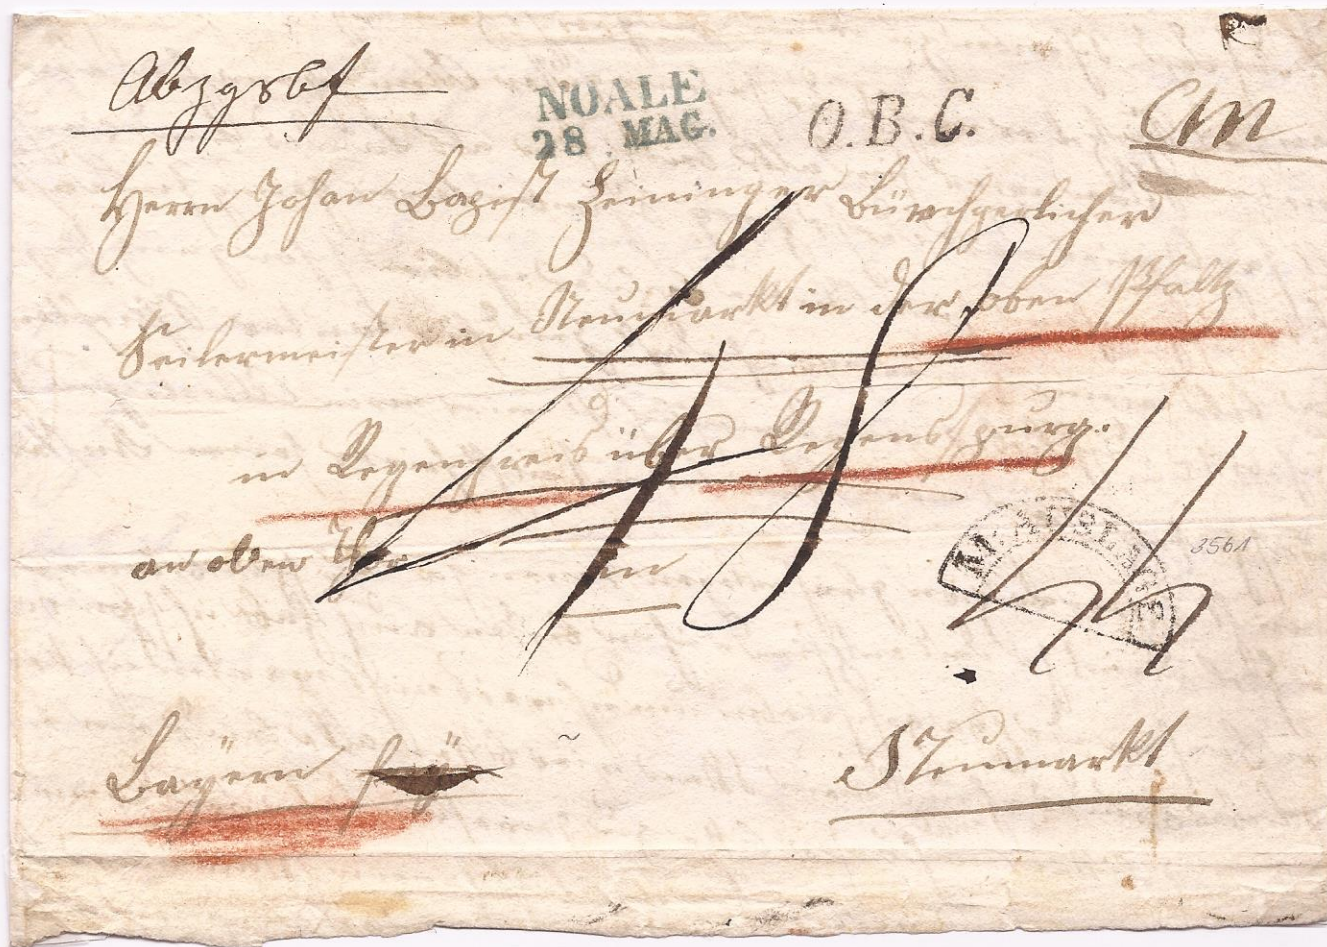 Abzgsbf
NOALE
28 MAG.
O.B.C.
Herrn Johan Bapist Zeininger Bürchgerlicher
Seilermeister in Neumarkt in der oben Pfaltz
in Regenkreis über Regenspurg.
an oben
in
48
3561
Bayern
Neumarkt